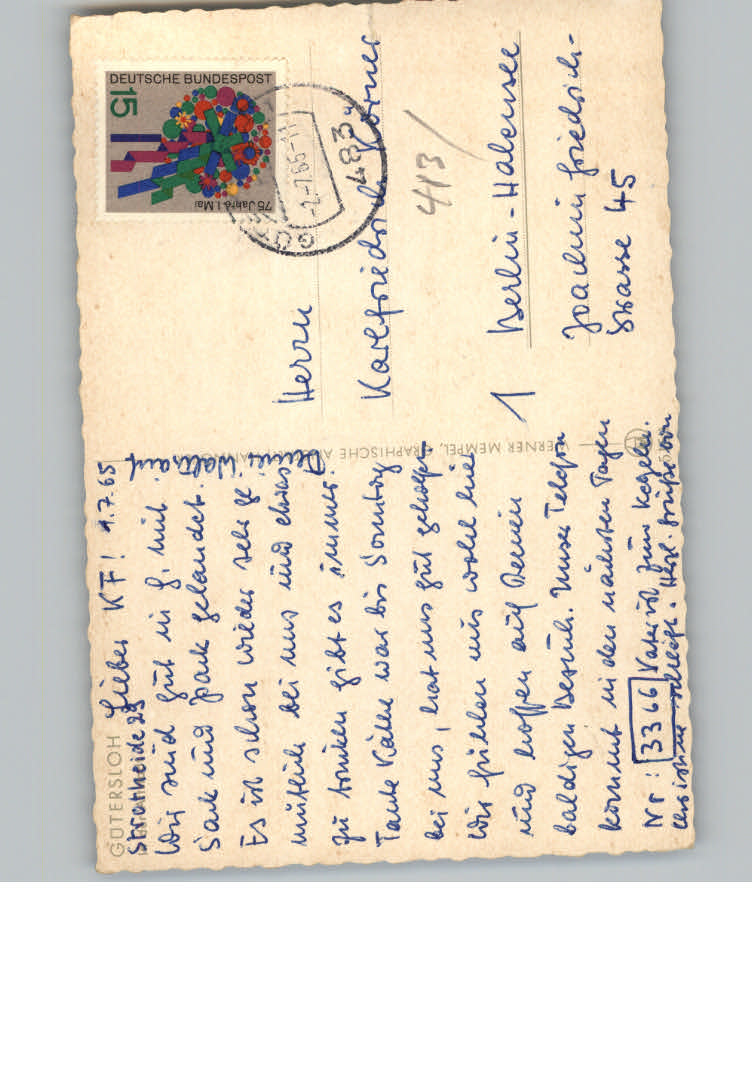 GÜTERSLOH
Strotheide 29
Lieber KF! 1.7.65
Wir sind gut in G. mit
Sack und Pack gelandet.
Es ist schon wieder sehr ge
mütlich bei uns und etwas
zu trinken gibt es immer.
Tante Käthe war bis Sonntag
bei uns, hat uns gut geholfen
Wir fühlen uns wohl hier
und hoffen auf Deinen
baldigen Besuch. Unser Telefon
kommt in den nächsten Tagen
Nr: 3366 Vater ist zum Kegeln.
Herzl. Grüße von
WERNER MEMPEL, GRAPHISCHE
DEUTSCHE BUNDESPOST
15
75 Jahre 1. Mai
-2.-7.65-11
483
Herrn
Karlfriedrich Körner
413/
1 Berlin-Halensee
Joachim Friedrich-
Strasse 45